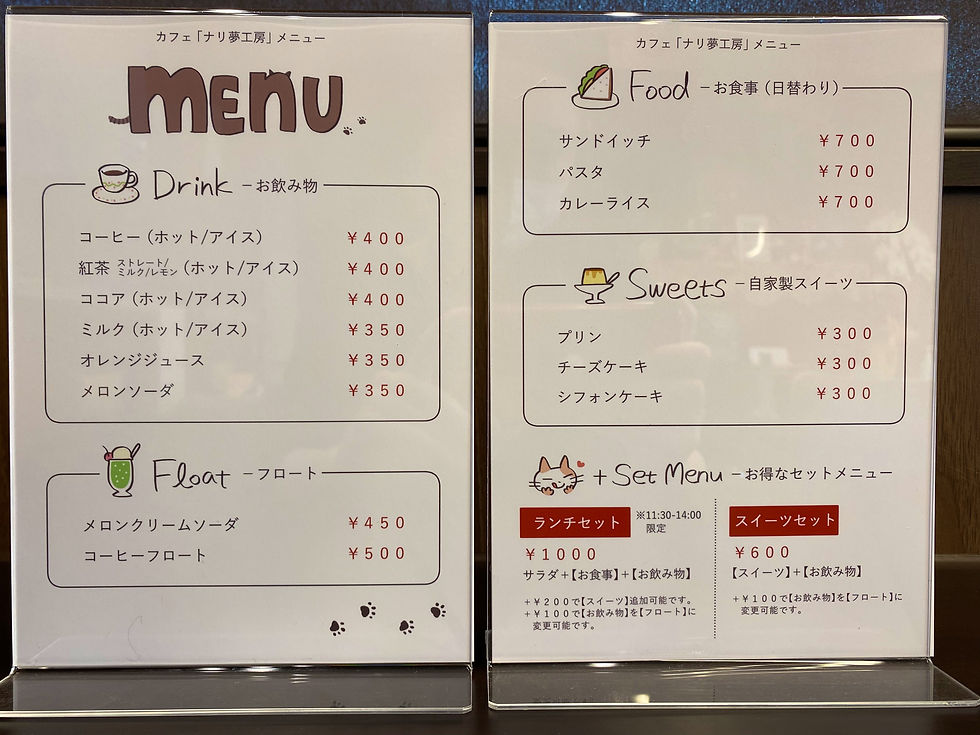 カフェ「ナリ夢工房」メニュー
MENU
Drink －お飲み物
コーヒー（ホット/アイス） ￥４００
紅茶 ストレート/ミルク/レモン（ホット/アイス） ￥４００
ココア（ホット/アイス） ￥４００
ミルク（ホット/アイス） ￥３５０
オレンジジュース ￥３５０
メロンソーダ ￥３５０
Float －フロート
メロンクリームソーダ ￥４５０
コーヒーフロート ￥５００
カフェ「ナリ夢工房」メニュー
Food －お食事（日替わり）
サンドイッチ ￥７００
パスタ ￥７００
カレーライス ￥７００
Sweets －自家製スイーツ
プリン ￥３００
チーズケーキ ￥３００
シフォンケーキ ￥３００
+Set Menu －お得なセットメニュー
ランチセット ※11:30-14:00
限定
￥１０００
サラダ+【お食事】+【お飲み物】
+￥２００で【スイーツ】追加可能です。
+￥１００で【お飲み物】を【フロート】に
変更可能です。
スイーツセット
￥６００
【スイーツ】+【お飲み物】
+￥１００で【お飲み物】を【フロート】に
変更可能です。